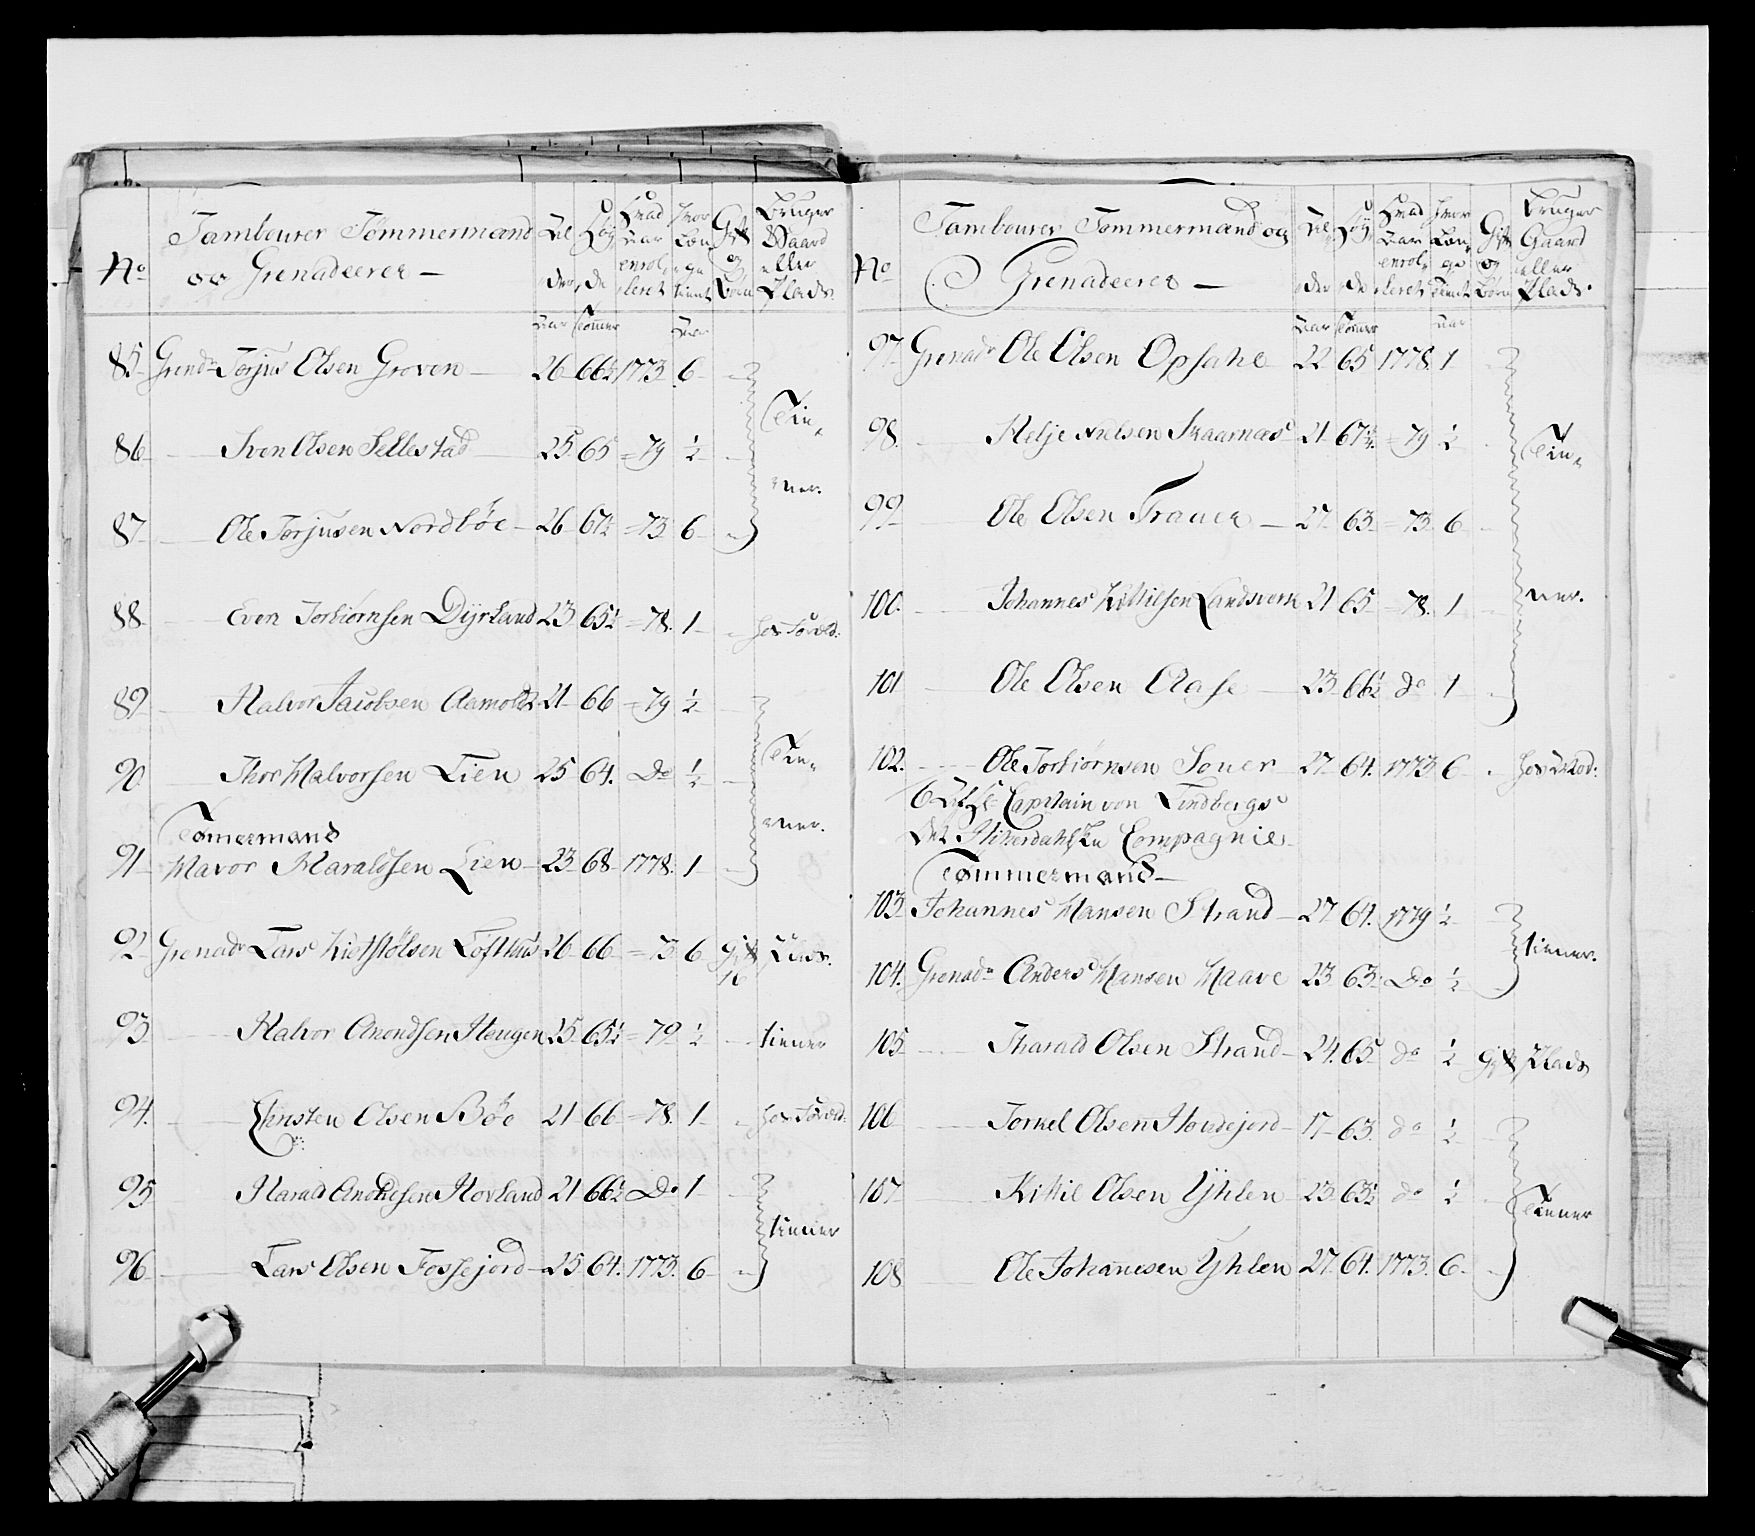 No
Tambourer Tømmermænd
og Grenadeerer —
Al
der
Høy
de
Hvad
Aar
enrol
leret
Hvor
Læn
ge
tient
Gift
og
Børn
Bruger
Gaard
eller
Plads
Aar Tomer Aar
85 Grend. Torjus Olsen Groven — 26 66½ 1773 6 -
Tie,
86 — Sven Olsen Sellestad 25 65 = 79 ½ -
ner.
87 — Ole Torjusen Nordbøe — 26 67½ = 73 6 -
88 — Even Torbiørnsen Dyrland 23 65½ = 78. 1 - hos Foræld:
89 — Halvor Jacobsen Aamoldt 21 66 = 79 ½ -
90 — Thor Halvorsen Lien 25 64. Do ½ -
Tie,
ner.
Tømermand
91 Havor Haraldsen Lien — 23 68 1778. 1 -
92 Grenadr Lars Kietstølsen Lofthus 26 66 = 73 6 gift Plads.
93 — Halvor Anondsen Haugen 25 65½ = 79 ½ - tiener
94. — Christen Olsen Bøe 21 66 = 78. 1 - hos Foræld:
95 — Harald Anondsen Hovland 21 66½ Do 1 -
tiener
96 — Lars Olsen Fossejord — 25 64. 1773. 6 -
No
Tambourer Tømmermænd og
Grenadeerer —
Al
der
Høy
de
Hvad
Aar
enrol
leret
Hvor
Læn
ge
tient
Gift
og
Børn
Bruger
Gaard
eller
Plads.
Aar Tomer Aar
97 Grenadr Ole Olsen Opsahl 22 65 1778. 1 -
98. — Helje Nielsen Skaarnæs 21 67½ = 79 ½ -
Tie,
99 Ole Olsen Traaen — 27 63 = 73 6 -
100. — Johannes Kittilsen Landsverk 21 65 = 78. 1 -
ner.
101 — Ole Olsen Aase — 23 66½ do 1 -
102. — Ole Torbiørnsen Souer 27 64. 1773 6 -
Capitain von Lindbergs
Det Hiterdahlske Compagnie
Tømmermand —
103 Johannes Hansen Strand — 27 64. 1779 ½ -
tiener.
104. Grenadr Anders Hansen Haave 23 63 Do ½ -
105 — Tharald Olsen Strand — 24. 65 do ½ gift Plads
106 — Torkel Olsen Houdejord — 17 63 do ½ -
107 Kittil Olsen Yhlen 23 63½ do ½ -
Tiener
108 Ole Johannesen Yhlen 27. 64. 1773. 6 -